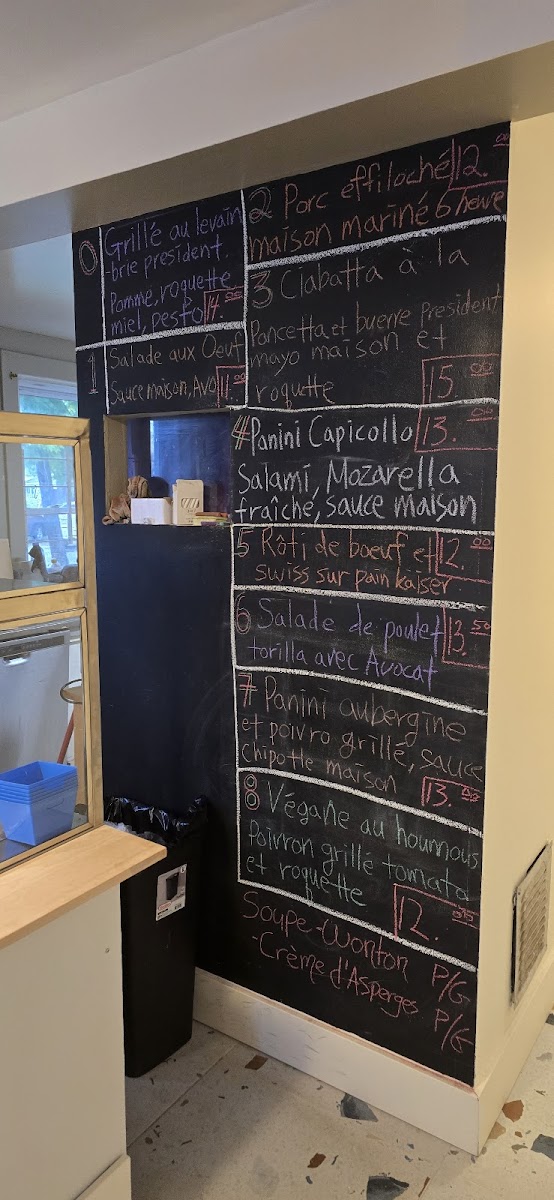 0 Grillé au levain
-brie president.
Pomme, roquette
miel, pesto 14.00
1 Salade aux Oeuf
Sauce maison, AVO 11.00
2 Porc effiloché 12.00
maison mariné 6 heure
3 Ciabatta à la
Pancetta et buerre president
mayo maison et
roquette 15.00
4 Panini Capicollo 13.00
Salami, Mozarella
fraîche, sauce maison
5 Rôti de boeuf et 12.00
swiss sur pain kaiser
6 Salade de poulet 13.50
torilla avec Avocat
7 Panini aubergine
et poivro grillé, sauce
chipotte maison 13.00
8 Végane au houmous
Poivron grillé tomato
et roquette 12.
Soupe-Wonton P/G
-Crème d'Asperges P/G